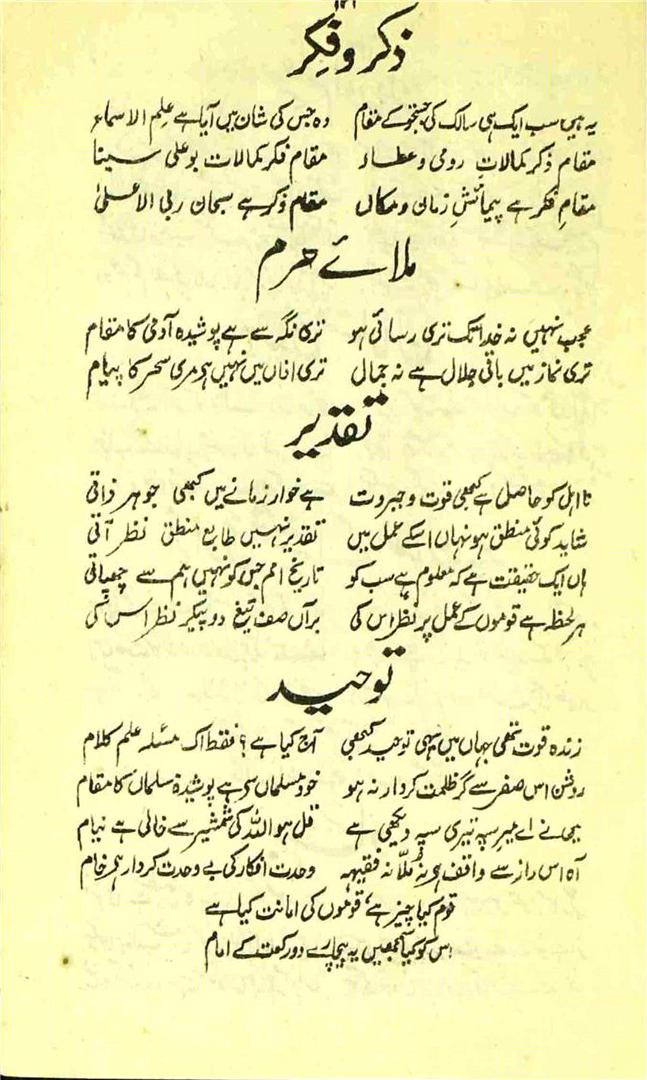 ذکر و فکر
یہ ہیں سب ایک ہی سالک کی جستجو کے مقام وہ جس کی شان میں آیا ہے علم الاسماء
مقام ذکر کمالات رومی و عطار مقام فکر کمالات بو علی سینا
مقام فکر ہے پیمائش زمان و مکاں مقام ذکر ہے سبحان ربی الاعلیٰ
ملائے حرم
عجب نہیں نہ خدا تک تری رسائی ہو تری نگہ سے ہے پوشیدہ آدمی کا مقام
تری نماز میں باقی جلال ہے نہ جمال تری اذاں میں نہیں ہے مری سحر کا پیام
تقدیر
نا اہل کو حاصل ہے کبھی قوت و جبروت ہے خوار زمانے میں کبھی جوہر ذاتی
شاید کوئی منطق ہو نہاں اسکے عمل میں تقدیر نہیں طابع منطق نظر آتی
ہاں ایک حقیقت ہے کہ معلوم ہے سب کو تاریخ امم جس کو نہیں ہم سے چھپاتی
ہر لحظہ ہے قوموں کے عمل پر نظر اس کی براں صفت تیغ دو پیکر نظر اس کی
توحید
زندہ قوت تھی جہاں میں یہی توحید کبھی آج کیا ہے؟ فقط اک مسئلہ علم کلام
روشن اس صفر سے گر ظلمت کردار نہ ہو خود مسلماں سے ہے پوشیدہ مسلماں کا مقام
میں نے اے میر سپہ تیری سپہ دیکھی ہے قل ہو اللہ کی شمشیر سے خالی ہے نیام
آہ اس راز سے واقف ہے نہ ملا نہ فقیہہ وحدت افکار کی بے وحدت کردار ہے خام
قوم کیا چیز ہے، قوموں کی امامت کیا ہے
اس کو کیا سمجھیں یہ بیچارے دو رکعت کے امام